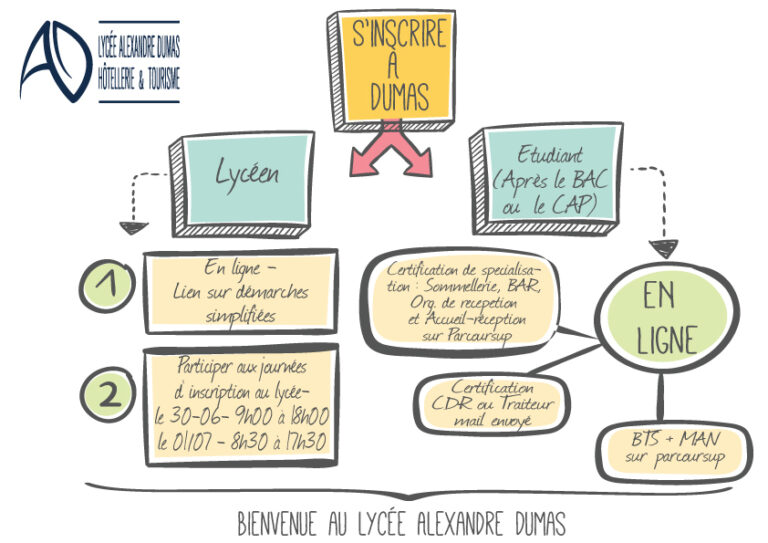 LYCÉE ALEXANDRE DUMAS
HÔTELLERIE & TOURISME
S'INSCRIRE
À
DUMAS
Lycéen
Etudiant
(Après le BAC
ou le CAP)
1
En ligne -
Lien sur démarches
simplifiées
2
Participer aux journées
d'inscription au lycée-
le 30-06- 9h00 à 18h00
le 01/07 - 8h30 à 17h30
Certification de specialisa-
tion : Sommellerie, BAR,
Org. de recepetion
et Accueil-réception
sur Parcoursup
EN
LIGNE
Certification
CDR ou Traiteur
mail envoyé
BTS + MAN
sur parcoursup
BIENVENUE AU LYCÉE ALEXANDRE DUMAS